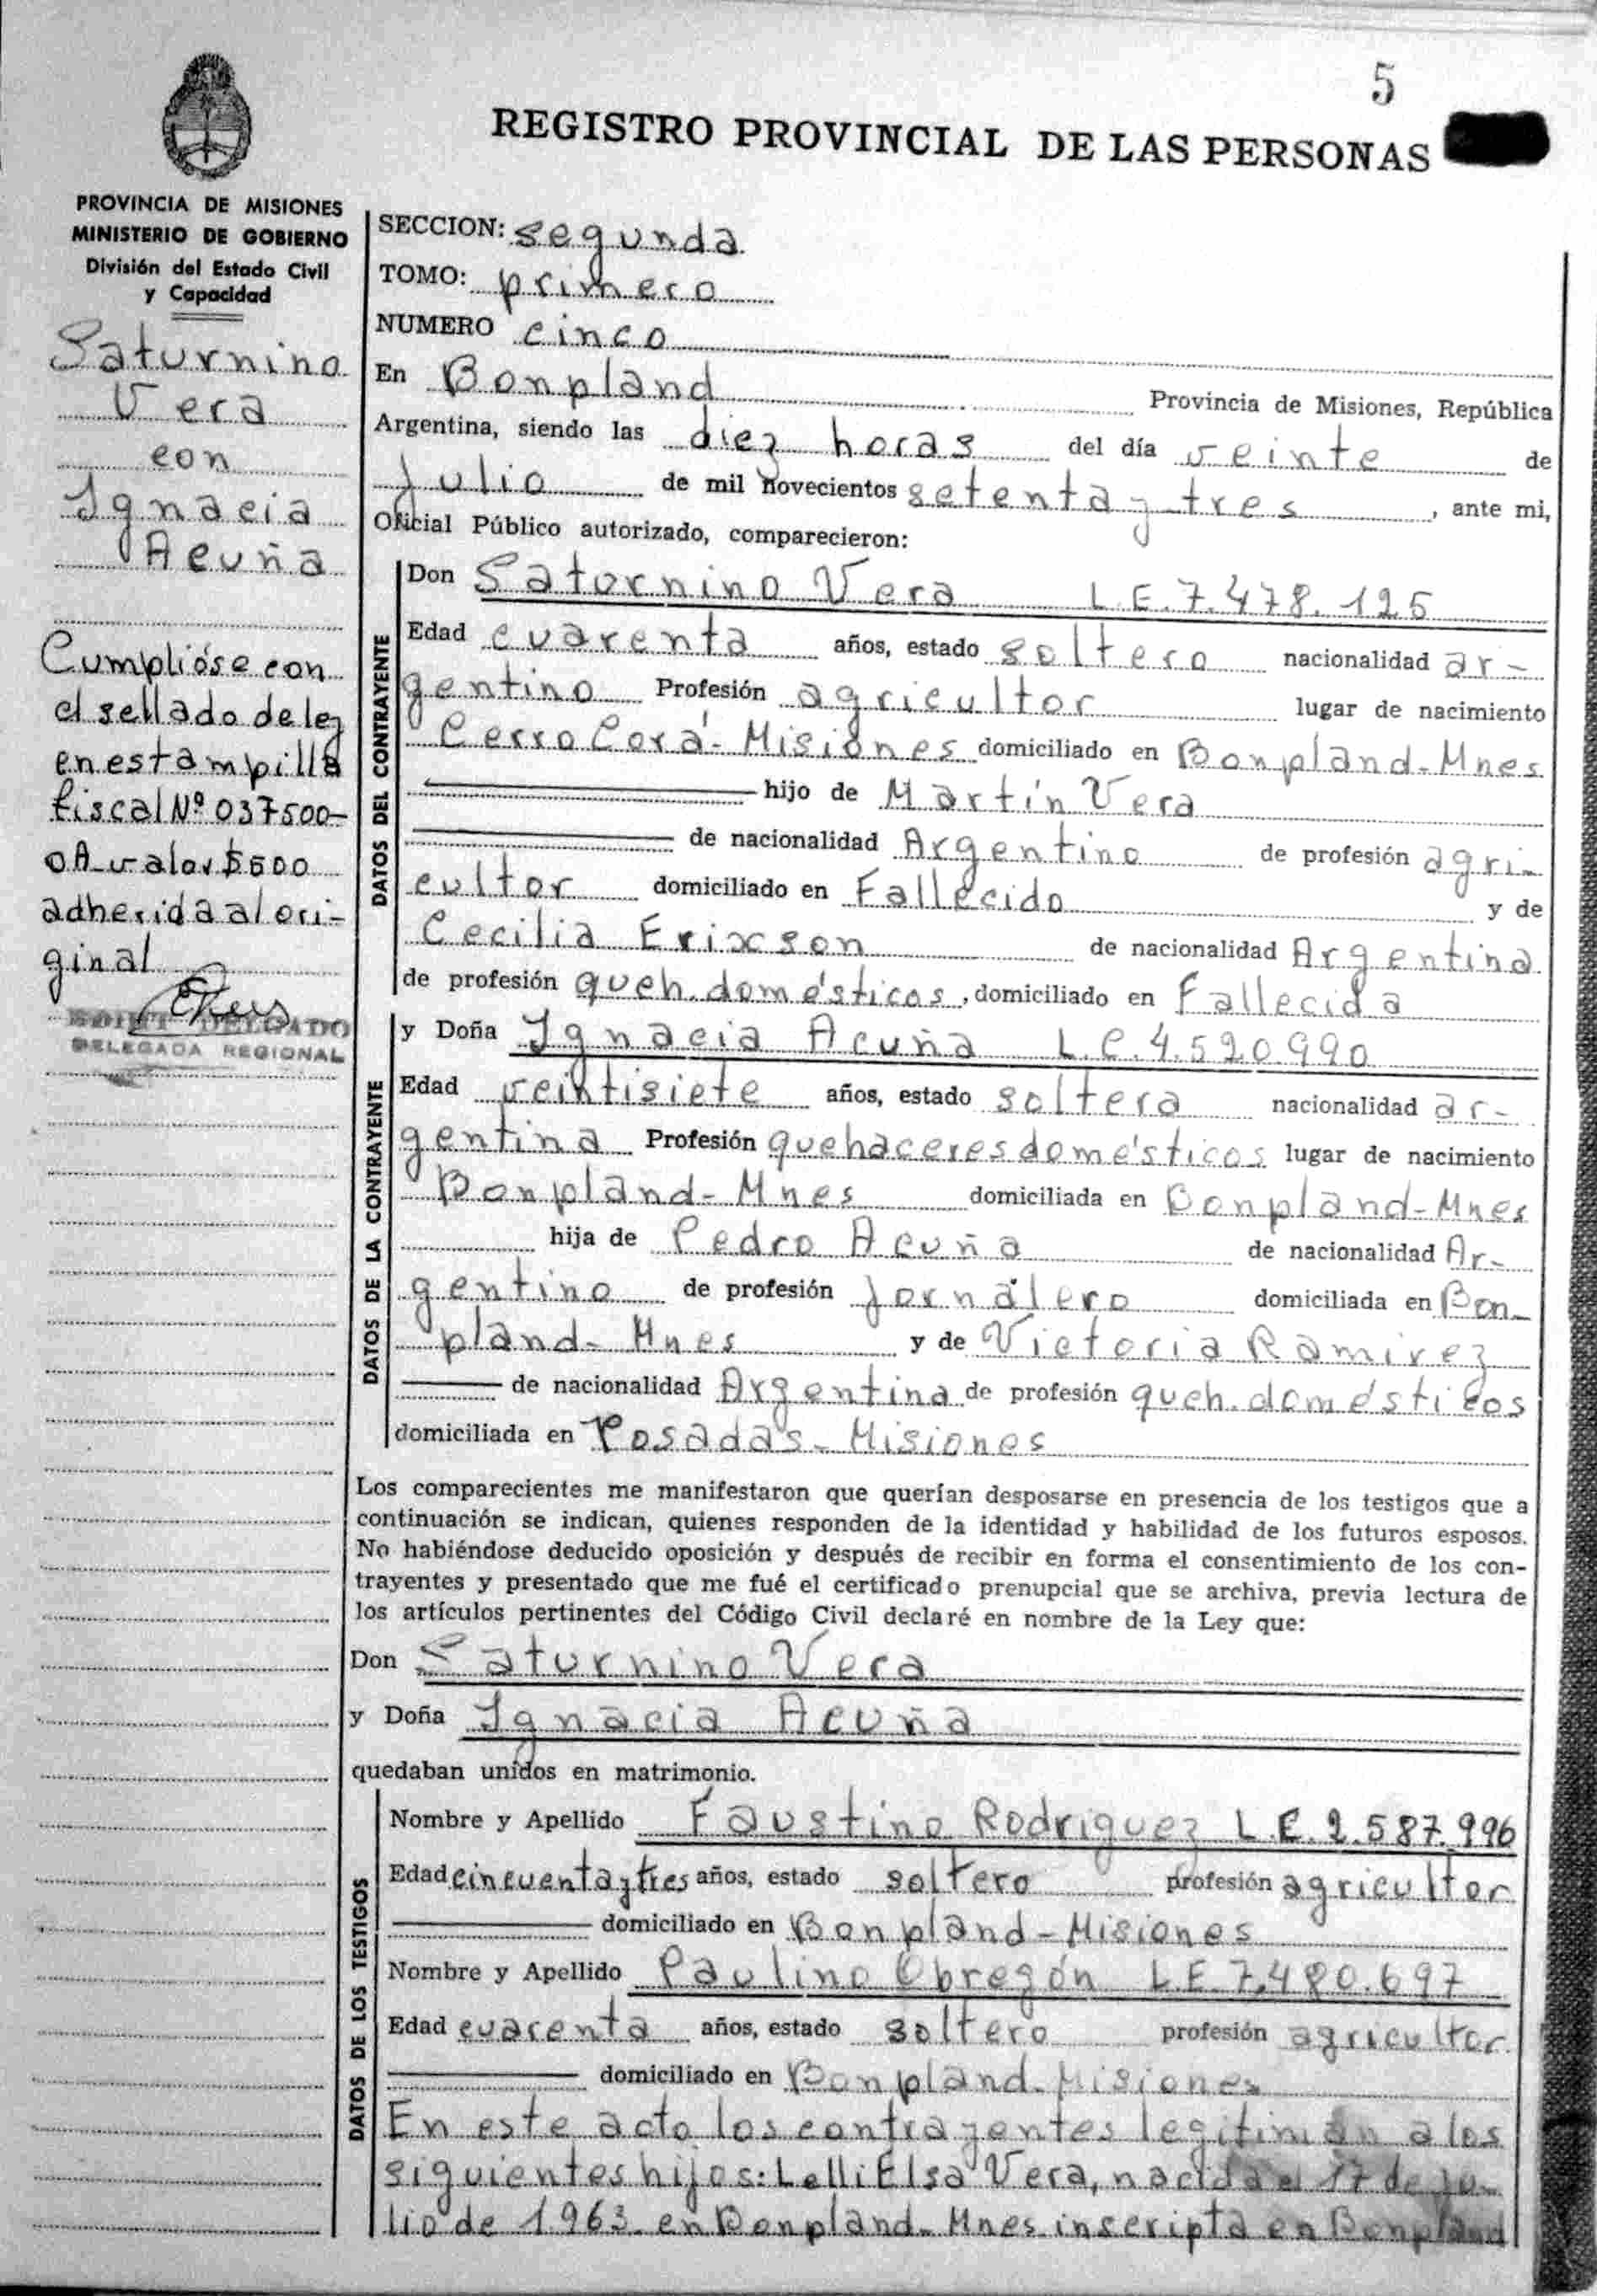 5
REGISTRO PROVINCIAL DE LAS PERSONAS
PROVINCIA DE MISIONES
MINISTERIO DE GOBIERNO
División del Estado Civil
y Capacidad
Saturnino
Vera
con
Ignacia
Acuña
Cumplióse con
el sellado de ley
en estampilla
fiscal Nº 037500-
0A valor $500
adherida al ori-
ginal
DELGADO
DELEGADA REGIONAL
SECCION: segunda
TOMO: primero
NUMERO cinco
En Bonpland Provincia de Misiones, República
Argentina, siendo las diez horas del día veinte de
Julio de mil novecientos setenta y tres, ante mi,
Oficial Público autorizado, comparecieron:
DATOS DEL CONTRAYENTE
Don Saturnino Vera L.E. 7.478.125
Edad cuarenta años, estado soltero nacionalidad ar-
gentino Profesión agricultor lugar de nacimiento
Cerro Corá - Misiones domiciliado en Bonpland - Mnes
hijo de Martín Vera
de nacionalidad Argentino de profesión agri-
cultor domiciliado en Fallecido y de
Cecilia Erixson de nacionalidad Argentina
de profesión queh. domésticos, domiciliado en Fallecida
DATOS DE LA CONTRAYENTE
y Doña Ignacia Acuña L.C. 4.520.990
Edad veintisiete años, estado soltera nacionalidad ar-
gentina Profesión quehaceres domésticos lugar de nacimiento
Bonpland - Mnes domiciliada en Bonpland - Mnes
hija de Pedro Acuña de nacionalidad Ar-
gentino de profesión Jornalero domiciliada en Bon-
pland - Mnes y de Victoria Ramirez
de nacionalidad Argentina de profesión queh. domésticos
domiciliada en Posadas - Misiones
Los comparecientes me manifestaron que querían desposarse en presencia de los testigos que a
continuación se indican, quienes responden de la identidad y habilidad de los futuros esposos.
No habiéndose deducido oposición y después de recibir en forma el consentimiento de los con-
trayentes y presentado que me fué el certificado prenupcial que se archiva, previa lectura de
los artículos pertinentes del Código Civil declaré en nombre de la Ley que:
Don Saturnino Vera
y Doña Ignacia Acuña
quedaban unidos en matrimonio.
DATOS DE LOS TESTIGOS
Nombre y Apellido Faustino Rodriguez L.E. 2.587.996
Edad cincuenta y tres años, estado soltero profesión agricultor
domiciliado en Bonpland - Misiones
Nombre y Apellido Paulino Obregón L.E. 7.480.697
Edad cuarenta años, estado soltero profesión agricultor
domiciliado en Bonpland - Misiones
En este acto los contrayentes legitiman a los
siguientes hijos: Lelli Elsa Vera, nacida el 17 de Ju-
lio de 1963 en Bonpland - Mnes inscripta en Bonpland